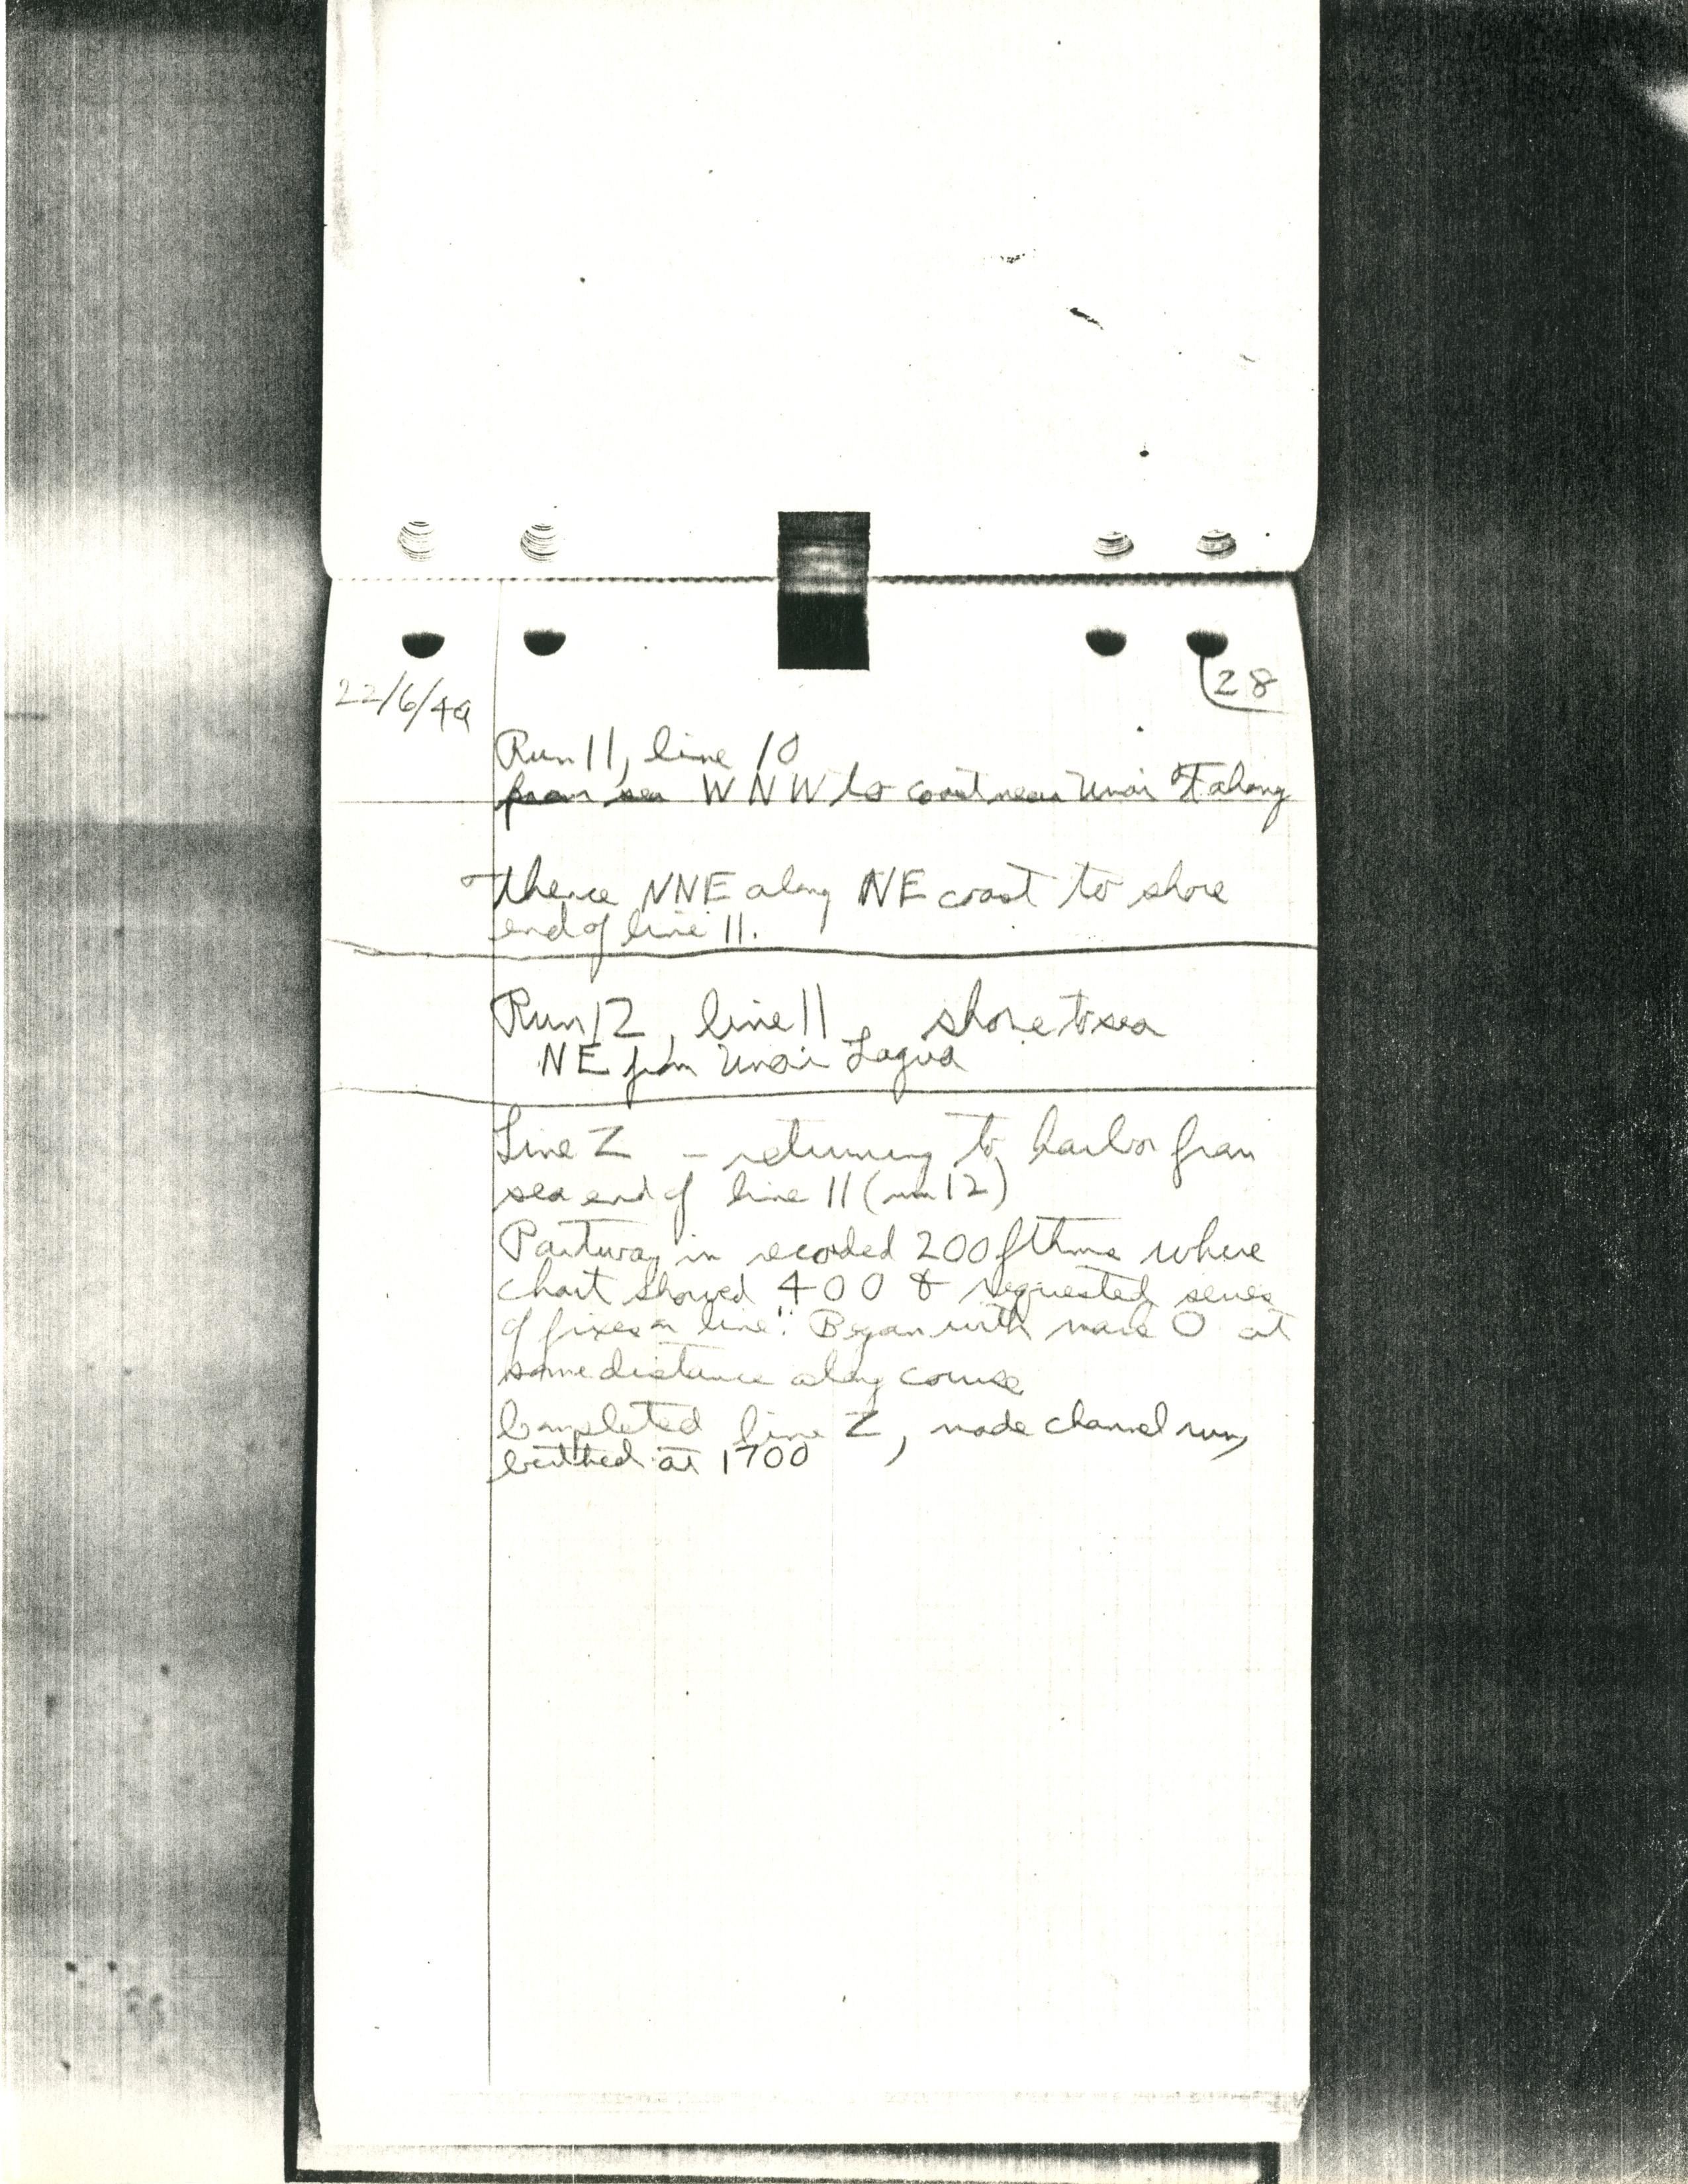 28
22/6/49
Run 11, line 10
from sea WNW to coast near Unai Fahang
thence NNE along NE coast to shore
end of line 11.
Run 12, line 11, shore to sea
NE from Unai Lagua
Line Z - returning to harbor from
sea end of line 11 (run 12)
Partway in recorded 200 fthms where
chart showed 400 & requested series
of fixes on line. Began with mark 0 at
some distance along course
Completed line Z, made channel run,
berthed at 1700